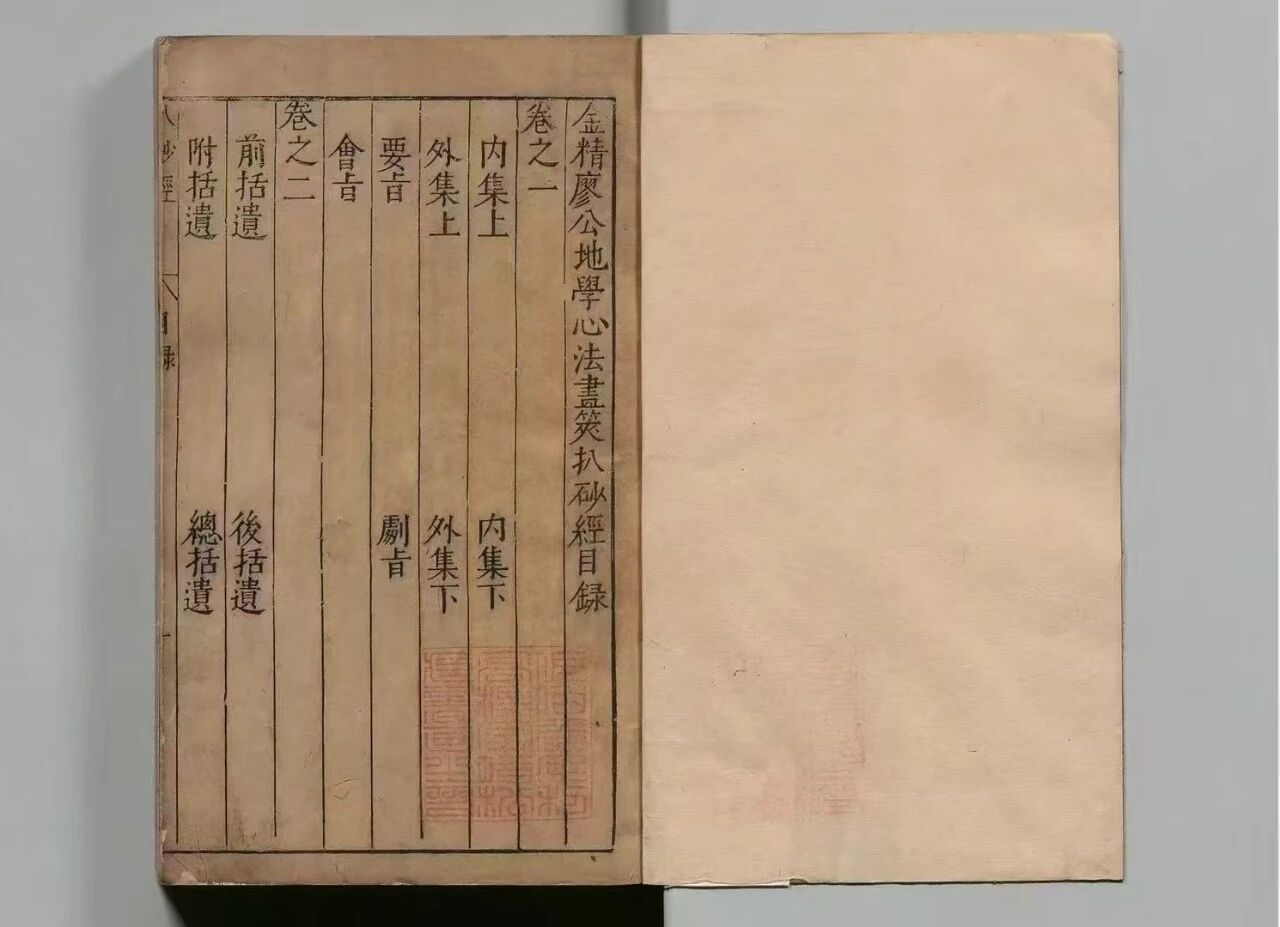 金精廖公地學心法晝筴扒砂經目録
卷之一
内集上 内集下
外集上 外集下
要旨 劇旨
會旨
卷之二
前括遺 後括遺
附括遺 總括遺
砂經 目録 一